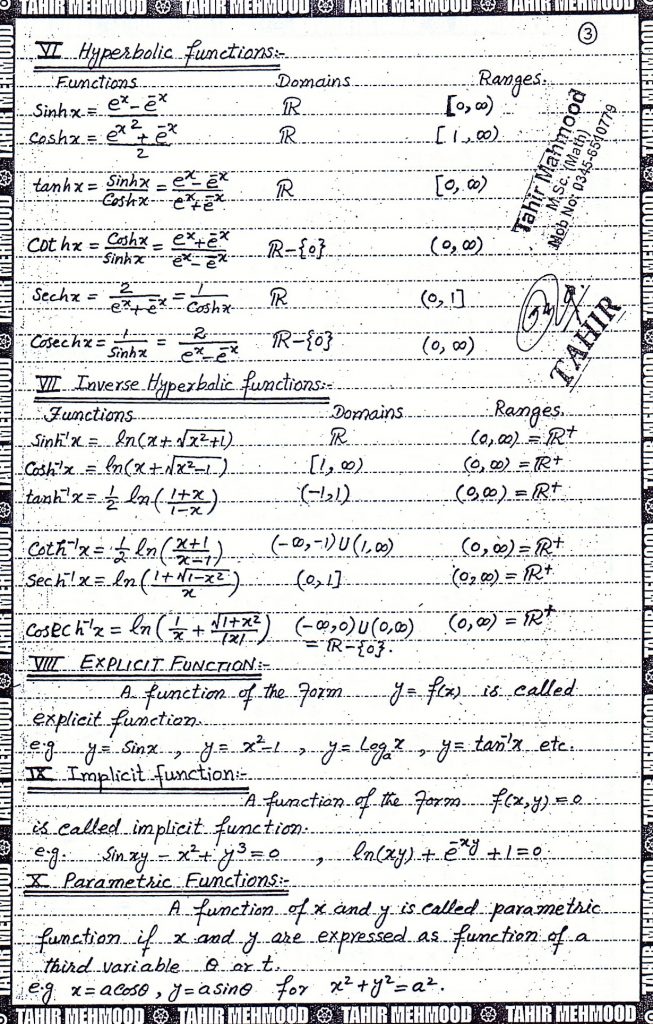 TAHIR MEHMOOD TAHIR MEHMOOD TAHIR MEHMOOD TAHIR MEHMOOD
3
VI Hyperbolic functions:-
Functions Domains Ranges.
Sinhx = (e^x - e^-x)/2 ℝ [0, ∞)
Coshx = (e^x + e^-x)/2 ℝ [1, ∞)
tanhx = Sinhx/Coshx = (e^x - e^-x)/(e^x + e^-x) ℝ [0, ∞)
Cothx = Coshx/Sinhx = (e^x + e^-x)/(e^x - e^-x) ℝ-{0} (0, ∞)
Sechx = 2/(e^x + e^-x) = 1/Coshx ℝ (0, 1]
Cosechx = 1/Sinhx = 2/(e^x - e^-x) ℝ-{0} (0, ∞)
Tahir Mahmood
M.Sc. (Math)
Mob No: 0345-6510779
TAHIR
VII Inverse Hyperbolic functions:-
Functions Domains Ranges.
Sinh⁻¹x = ln(x+√(x²+1)) ℝ (0, ∞) = ℝ⁺
Cosh⁻¹x = ln(x+√(x²-1)) [1, ∞) (0, ∞) = ℝ⁺
tanh⁻¹x = 1/2 ln((1+x)/(1-x)) (-1, 1) (0, ∞) = ℝ⁺
Coth⁻¹x = 1/2 ln((x+1)/(x-1)) (-∞, -1) U (1, ∞) (0, ∞) = ℝ⁺
Sech⁻¹x = ln((1+√(1-x²))/x) (0, 1] (0, ∞) = ℝ⁺
Cosech⁻¹x = ln(1/x + √(1+x²)/|x|) (-∞, 0) U (0, ∞) (0, ∞) = ℝ⁺
= ℝ-{0}.
VIII EXPLICIT FUNCTION:-
A function of the Form y = f(x) is called
explicit function.
e.g y = Sinx , y = x²-1 , y = Logₐx , y = tan⁻¹x etc.
IX Implicit function:-
A function of the Form f(x,y) = 0
is called implicit function.
e.g. Sin xy - x² + y³ = 0 , ln(xy) + e^-xy + 1 = 0
X Parametric Functions:-
A function of x and y is called parametric
function if x and y are expressed as function of a
third variable θ or t.
e.g x = a cosθ , y = a sinθ for x² + y² = a².
TAHIR MEHMOOD TAHIR MEHMOOD TAHIR MEHMOOD TAHIR MEHMOOD